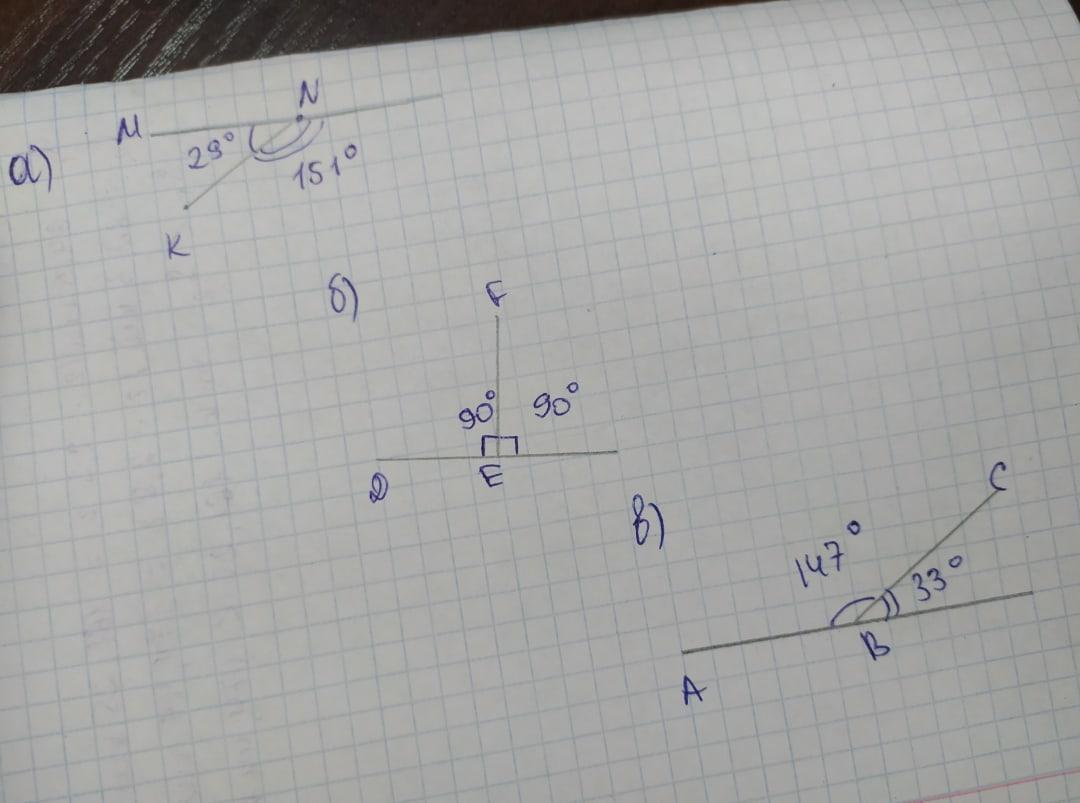 а)
M
N
29°
151°
K
б)
F
90° 90°
D
E
в)
C
147°
33°
B
A